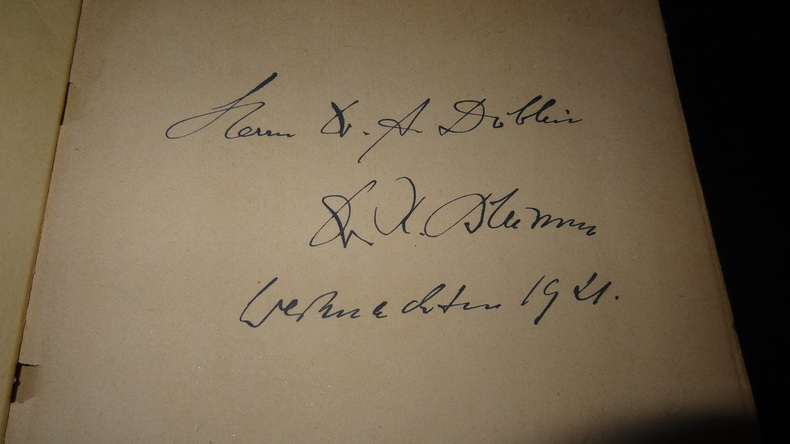 Herrn Dr. A. Döblin
Dr. K.
Weihnachten 1921.